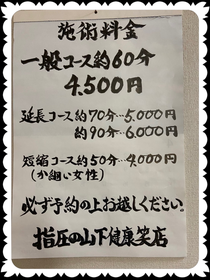 施術料金
一般コース約60分
4.500円
延長コース約70分…5.000円
約90分…6.000円
短縮コース約50分…4.000円
(か細い女性)
必ず予約の上お越しください。
指圧の山下健康笑店